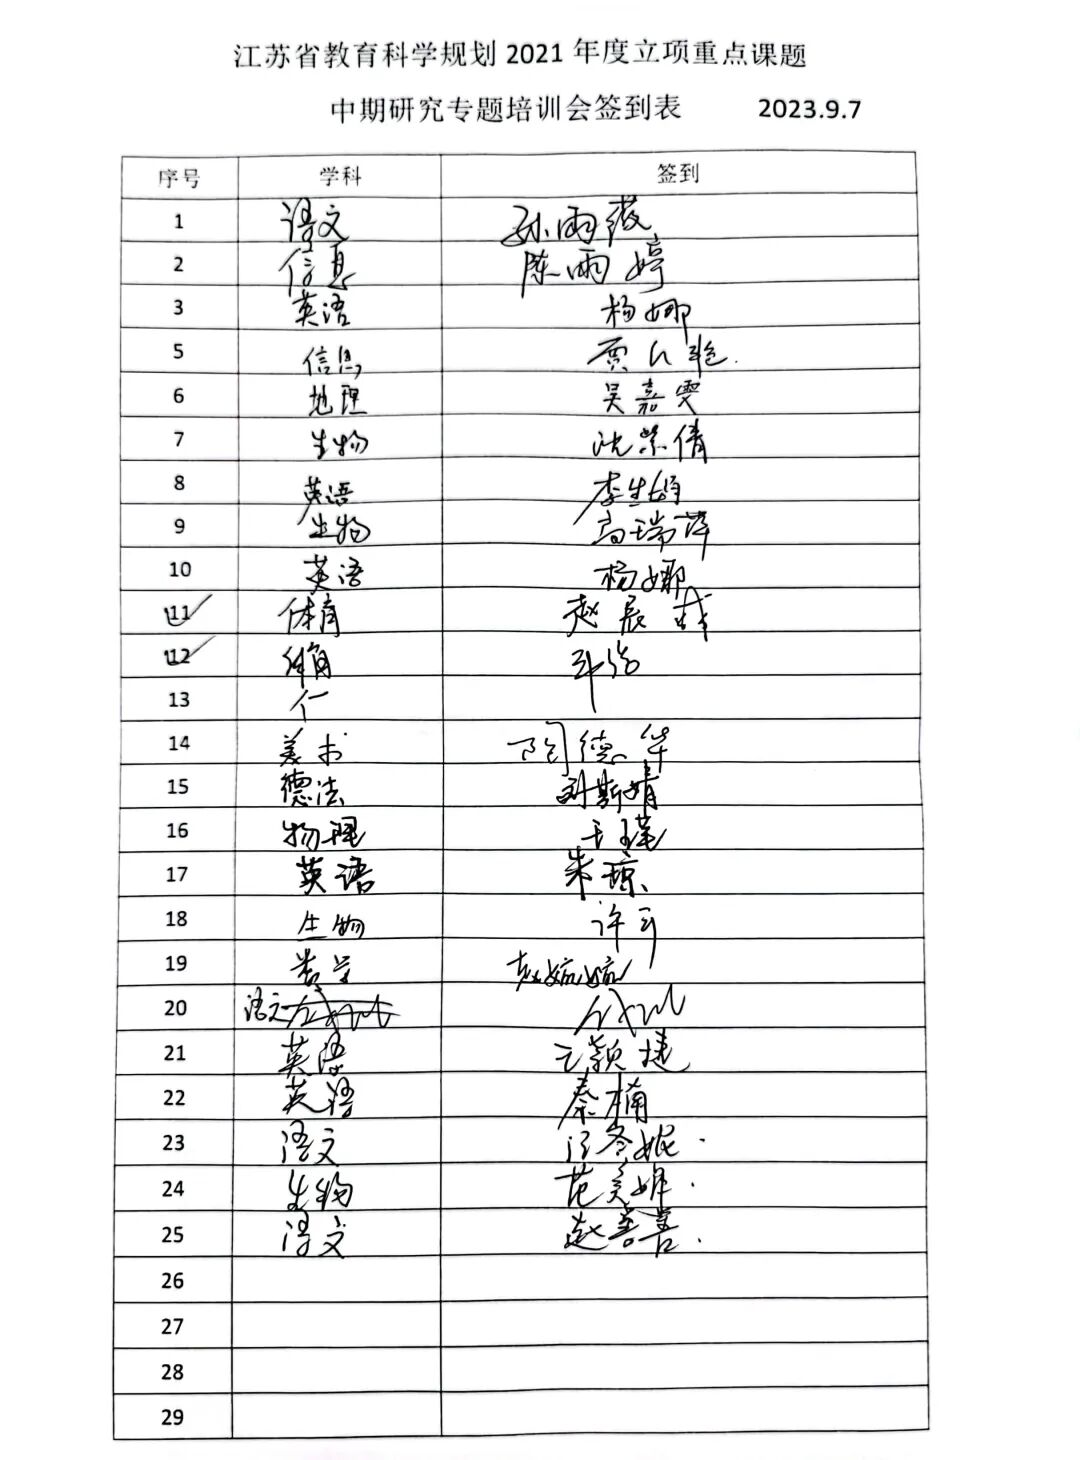 江苏省教育科学规划 2021 年度立项重点课题
中期研究专题培训会签到表 2023.9.7
序号 学科 签到
1 语文 孙雨薇
2 信息 陈雨婷
3 英语 杨娜
5 信息 贾
6 地理 吴嘉雯
7 生物 沈紫倩
8 英语 李生娟
9 生物 高瑞萍
10 英语 杨娜
11 体育 赵晨
12 体育
13
14 美术 陶德华
15 德法 刘斯婧
16 物理 王瑾
17 英语 朱琼
18 生物 许可
19 数学 赵嫔嫔
20 语文
21 英语 颖捷
22 英语 秦楠
23 语文 汪冬妮
24 生物 范美娟
25 语文 赵善善
26
27
28
29